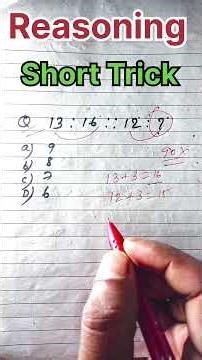 Reasoning
Short Trick
Q 13 : 16 :: 12 : ?
a) 9
b) 8
c) 7
D) 6
90%
13+3=16
12+3=15